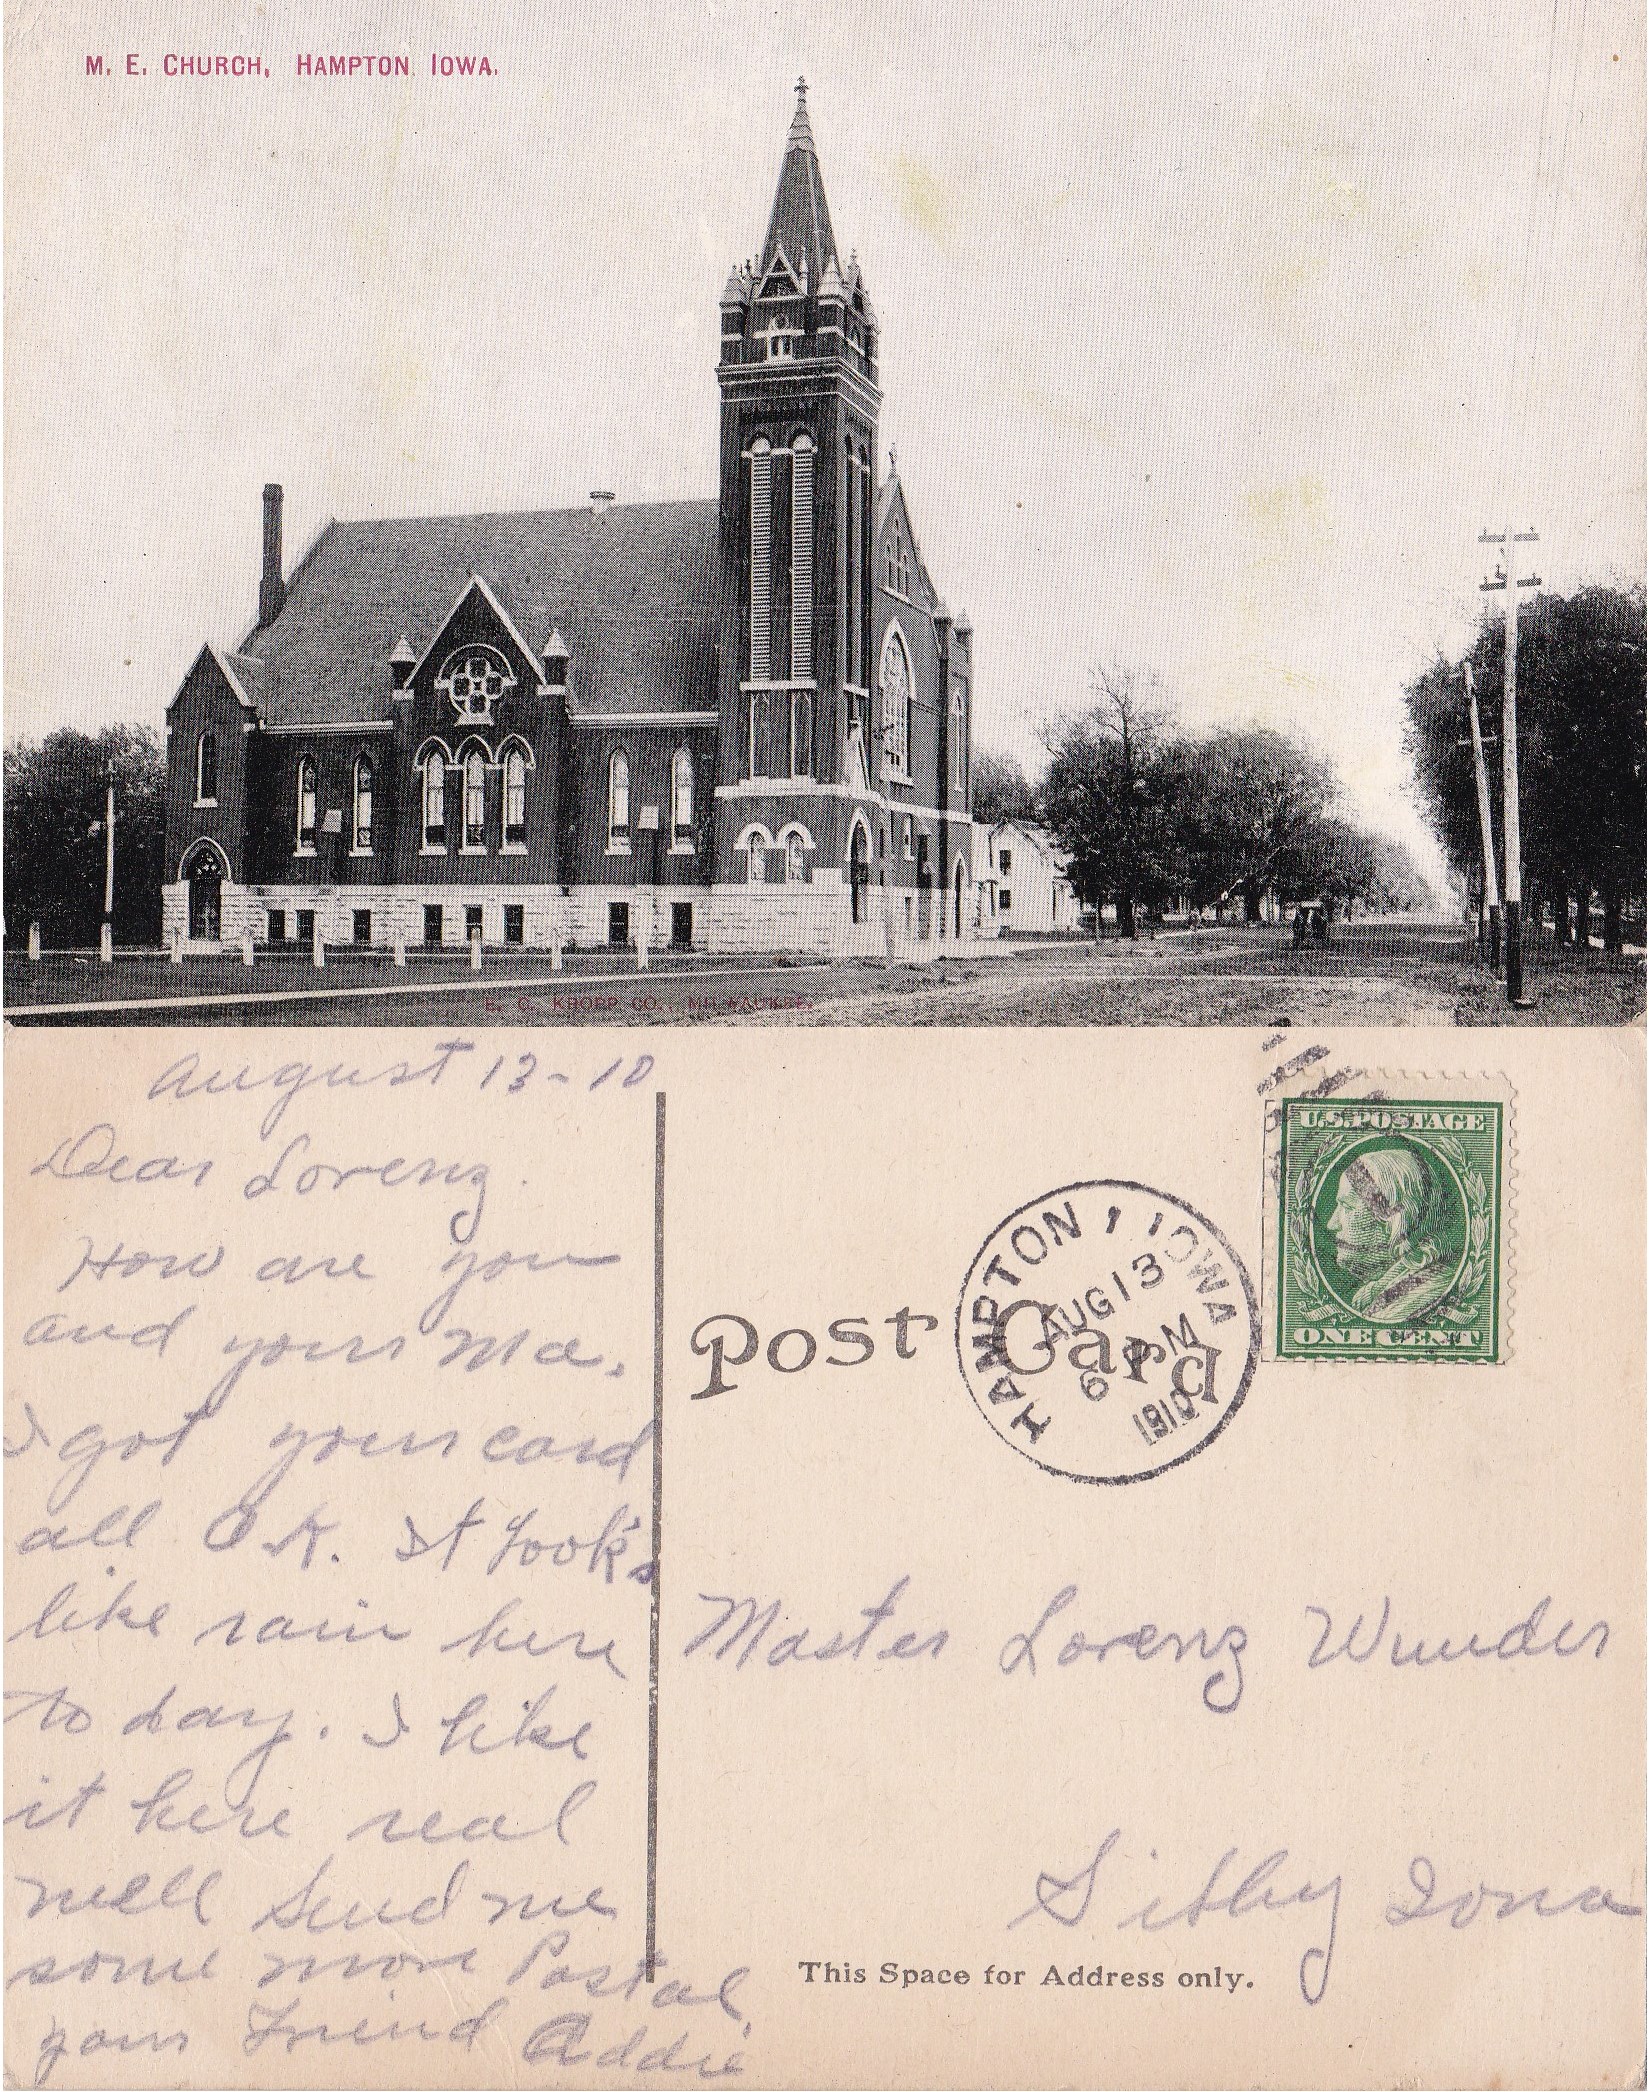 M. E. CHURCH, HAMPTON IOWA.
E. C. KROPP CO., MILWAUKEE.
August 13-10
Dear Lorenz.
How are you
and your Ma.
I got your card
all O.K. It look's
like rain here
to day. I like
it here real
well Send me
some more Postal
your Friend Addie
U.S. POSTAGE
ONE CENT
HAMPTON, IOWA
AUG 13
6 PM
1910
Post Card
Master Lorenz Wunder
Sibley Iowa
This Space for Address only.